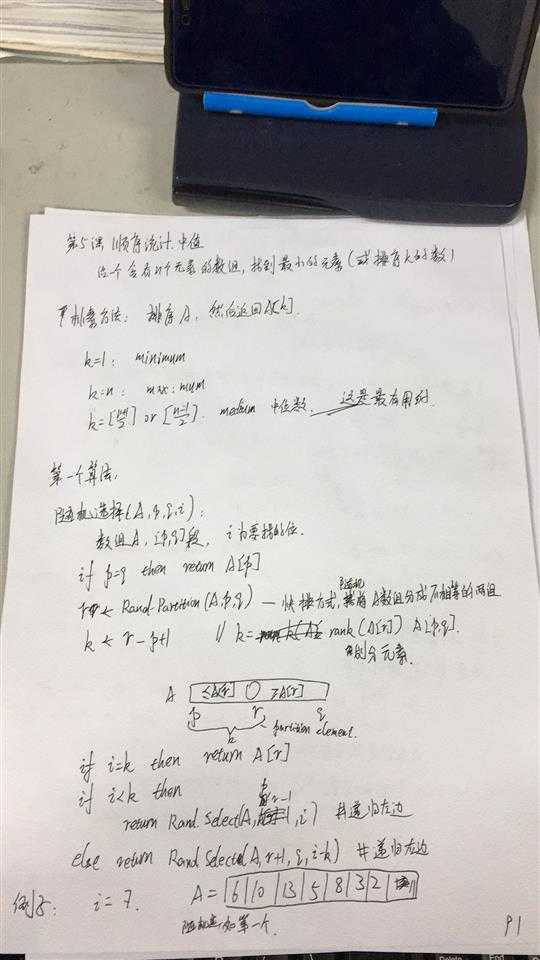 第5课 顺序统计.中值
给个含有n个元素的数组,找到最小的元素(或排序k的数)
朴素方法: 排序A, 然后返回A[k].
k=1: minimum
k=n: maximum
or medium 中位数. 这是最有用的
第一个算法,
随机选择(A,p,q,i):
数组A, [p,q]段, i为要找的位.
if p=q then return A[p]
r ← Rand-Partition(A,p,q) — 快排方式, 随机 A数组分成不相等的两组
k ← r-p+1 // k= rank(A[r]) A[p,q].
划分元素.
A ≤A[r] ≥A[r]
p r q
k partition element.
if i=k then return A[r]
if i<k then
p r-1
return Rand Select(A, ,i) #递归左边
else return Rand Select(A, r+1, q, i-k) #递归左边
例子: i=7. A=|6|10|13|5|8|3|2|11|
随机选如第一个.
P1
Delete End